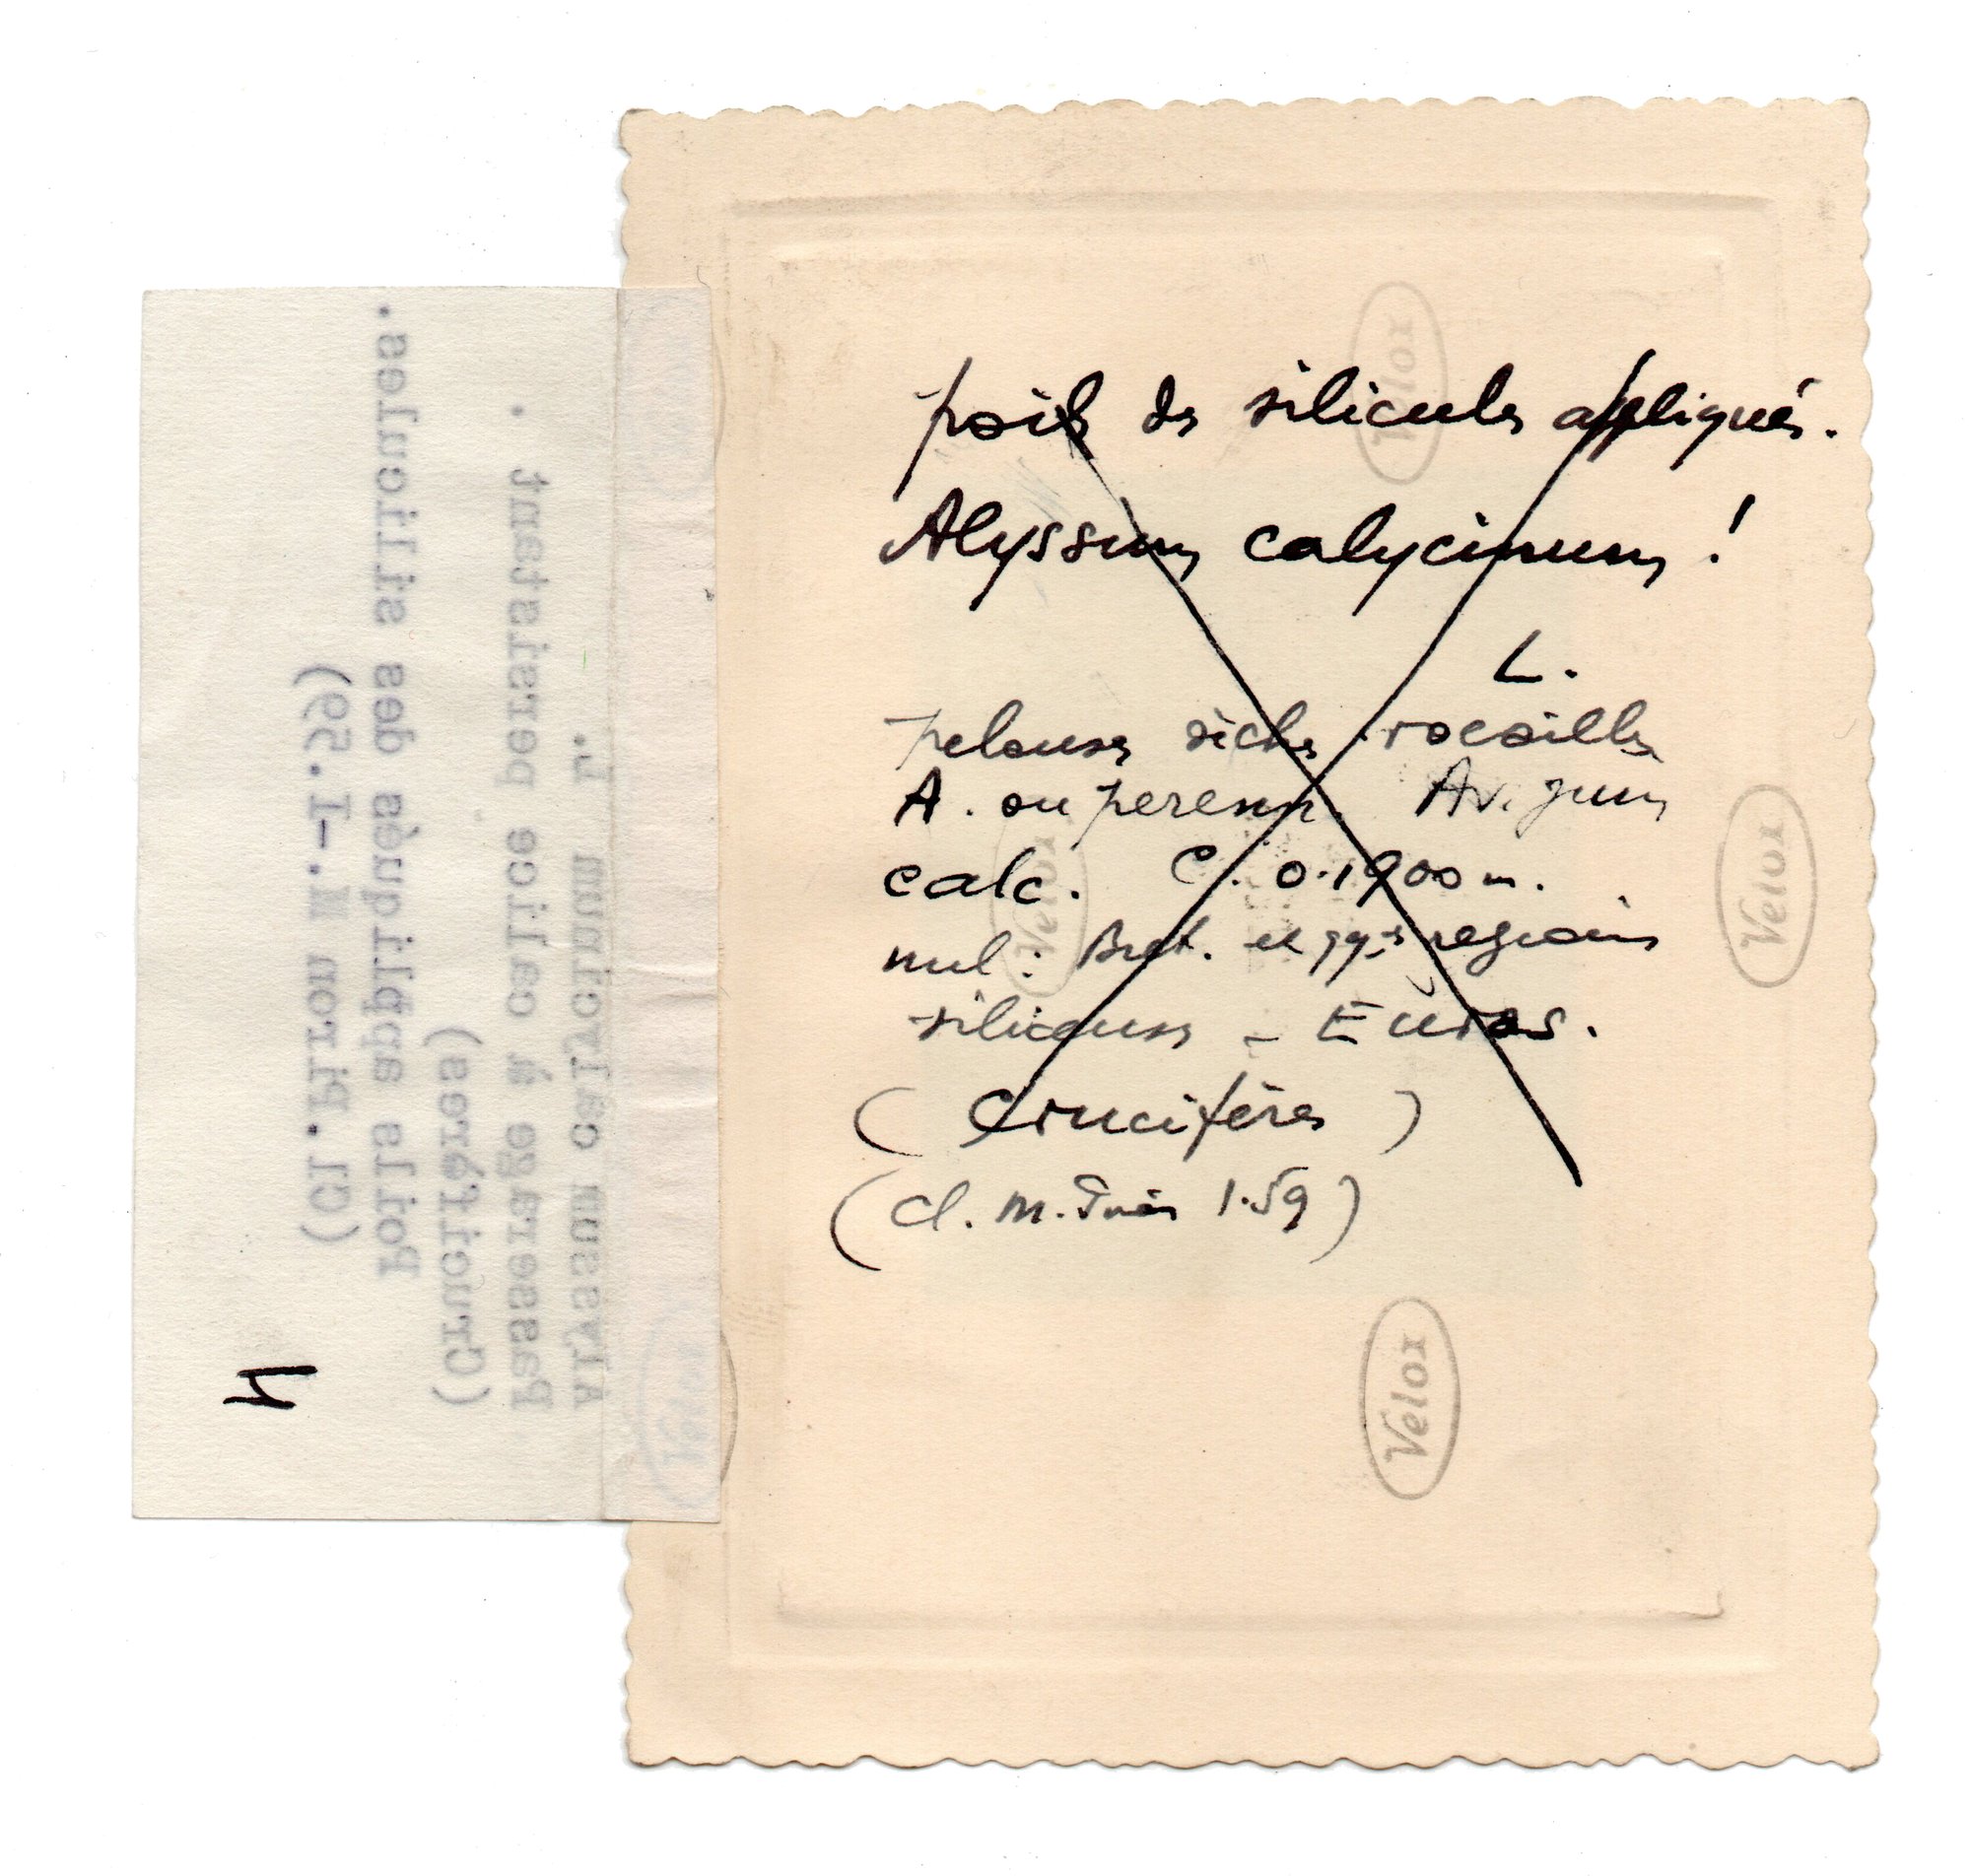 poils des silicules appliqués.
Alyssum calycinum !
L.
pelouses sèches rocailles
A. ou perenn. Av. juin
calc. C. 0.1900 m.
nul : Bret. et qqs régions
siliceuses - Euras.
(Crucifères)
(Cl. M. 1.59)
Alyssum calycinum L.
Passerage à calice persistant .
(Crucifères)
Poils appliqués des silicules.
(Cl. Piron M.-I.59)
Velox
Velox
Velox
Velox
Velox